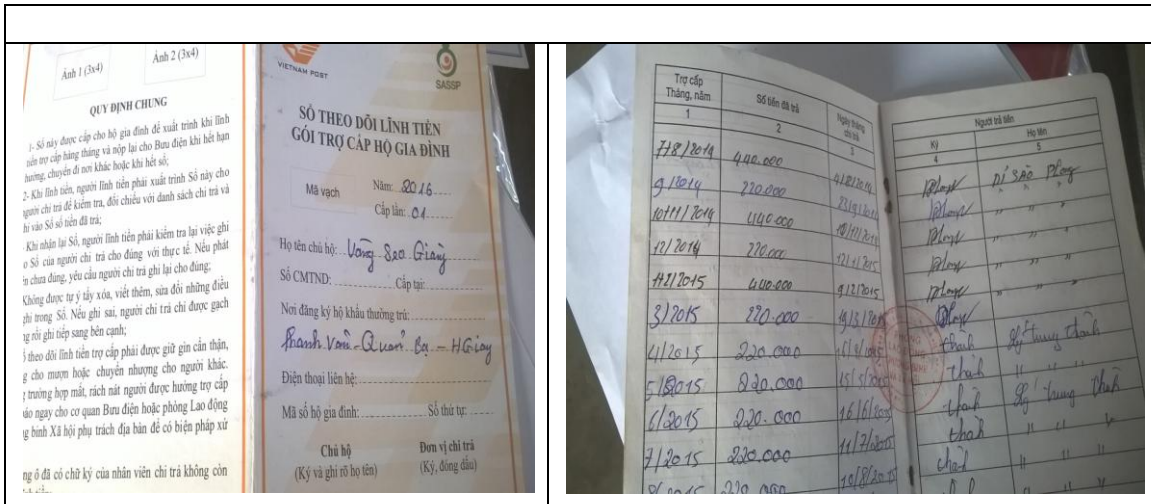 Ảnh 1 (3x4)
Ảnh 2 (3x4)
QUY ĐỊNH CHUNG
1- Sổ này được cấp cho hộ gia đình để xuất trình khi lĩnh
tiền trợ cấp hàng tháng và nộp lại cho Bưu điện khi hết hạn
hưởng, chuyển đi nơi khác hoặc khi hết sổ;
2- Khi lĩnh tiền, người lĩnh tiền phải xuất trình Sổ này cho
người chi trả để kiểm tra, đối chiếu với danh sách chi trả và
hi vào Sổ số tiền đã trả;
Khi nhận lại Sổ, người lĩnh tiền phải kiểm tra lại việc ghi
o Sổ của người chi trả cho đúng với thực tế. Nếu phát
n chưa đúng, yêu cầu người chi trả ghi lại cho đúng;
Không được tự ý tẩy xóa, viết thêm, sửa đổi những điều
ghi trong Sổ. Nếu ghi sai, người chi trả chi được gạch
ng rồi ghi tiếp sang bên cạnh;
theo dõi lĩnh tiền trợ cấp phải được giữ gìn cẩn thận,
g cho mượn hoặc chuyển nhượng cho người khác.
trường hợp mất, rách nát người được hưởng trợ cấp
báo ngay cho cơ quan Bưu điện hoặc phòng Lao động
g binh Xã hội phụ trách địa bàn để có biện pháp xử
ng ô đã có chữ ký của nhân viên chi trả không còn
VIETNAM POST
SASSP
SỔ THEO DÕI LĨNH TIỀN
GÓI TRỢ CẤP HỘ GIA ĐÌNH
Mã vạch
Năm: 2016
Cấp lần: 01
Họ tên chủ hộ: Vàng Seo Giàng
Số CMTND: Cấp tại:
Nơi đăng ký hộ khẩu thường trú:
Thanh Vân - Quản Bạ - HGiang
Điện thoại liên hệ:
Mã số hộ gia đình: Số thứ tự:
Chủ hộ
(Ký và ghi rõ họ tên)
Đơn vị chi trả
(Ký, đóng dấu)
Trợ cấp Tháng, năm
Số tiền đã trả
Ngày tháng chi trả
Người trả tiền
Ký
Họ tên
1 2 3 4 5
7+8/2014 440.000
9/2014 220.000
10+11/2014 440.000
12/2014 220.000 12/1/2015
1+2/2015 440.000 9/2/2015
3/2015 220.000 19/3/2015
4/2015 220.000 thành trung thành
5/2015 220.000 15/5/2015 thành " " "
6/2015 220.000 16/6/2015 thành trung thành
7/2015 220.000 11/7/2015 thành " " "
8/2015 220.000 10/8/2015